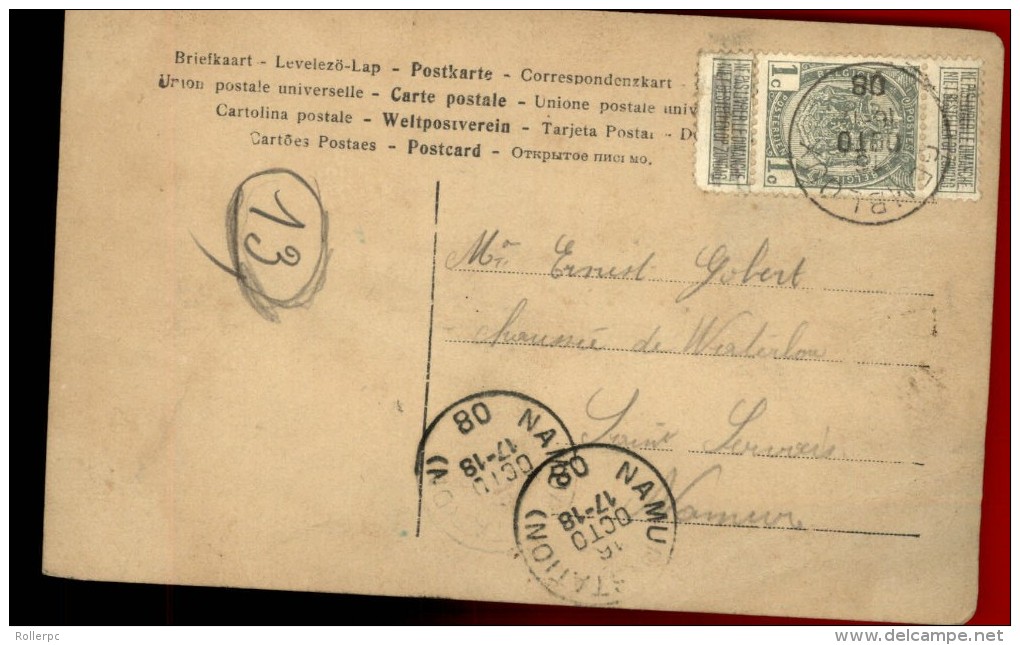 Briefkaart - Levelező-Lap - Postkarte - Correspondenzkart -
Union postale universelle - Carte postale - Unione postale univ
Cartolina postale - Weltpostverein - Tarjeta Postal - D
Cartões Postaes - Postcard - Открытое письмо.
1c BELGIQUE 1c
NE PAS LIVRER LE DIMANCHE
NIET BESTELLEN OP ZONDAG
NE PAS LIVRER LE DIMANCHE
NIET BESTELLEN OP ZONDAG
GEMBLOUX
OCTO
08
13
Mr Ernest Gobert
Chaussée de Waterloo
Saint Servais
Namur
NAMUR (STATION)
OCTO
17-18
08
NAMUR (STATION)
15
OCTO
17-18
08
Rollerpc
www.delcampe.net